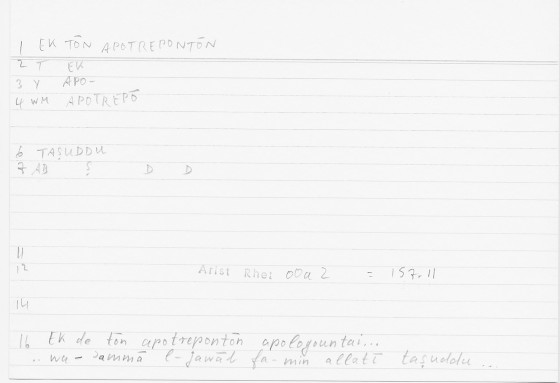 1 EK TŌN APOTREPONTŌN
2 T EK
3 Y APO-
4 WM APOTREPŌ
6 TAṢUDDU
7 AB Ṣ D D
11
12 Arist Rhet 00a 2 = 157.11
14
16 Ek de tōn apotrepontōn apologountai...
.. wa-ʾammā l-jawāb fa-min allatī taṣuddu ...